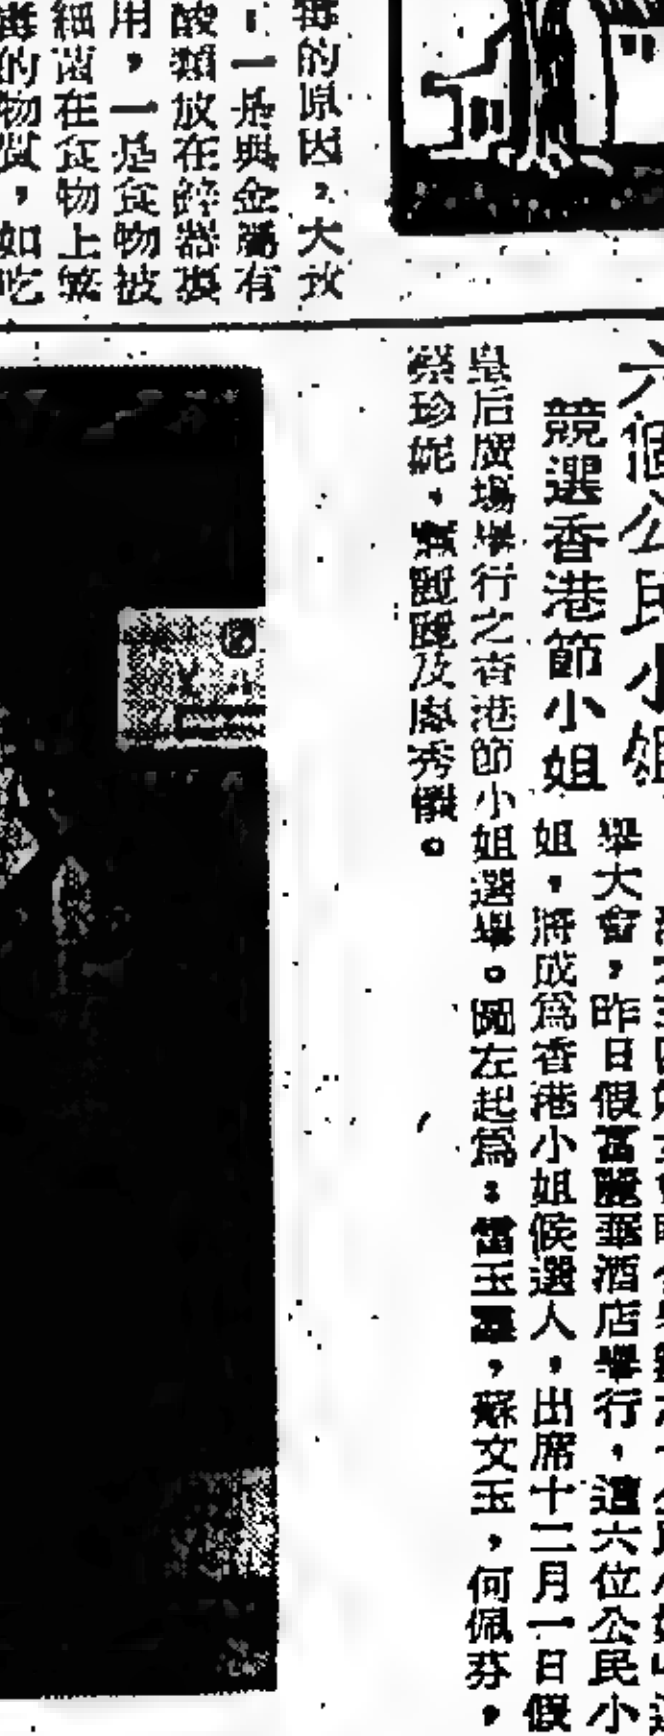 毒的原因，大致
：一是與金屬有
酸類放在鋅器裏
用，一是食物被
細菌在食物上繁
毒的物質，如吃
六個公民小姐
競選香港節小姐
舉大會，昨日假富麗華酒店舉行，這六位公民小
姐，將成爲香港小姐候選人，出席十二月一日假
皇后廣場舉行之香港節小姐選舉。圖左起爲：雷玉，蘇文玉，何佩芬，
蔡珍妮，麗麗及廖秀